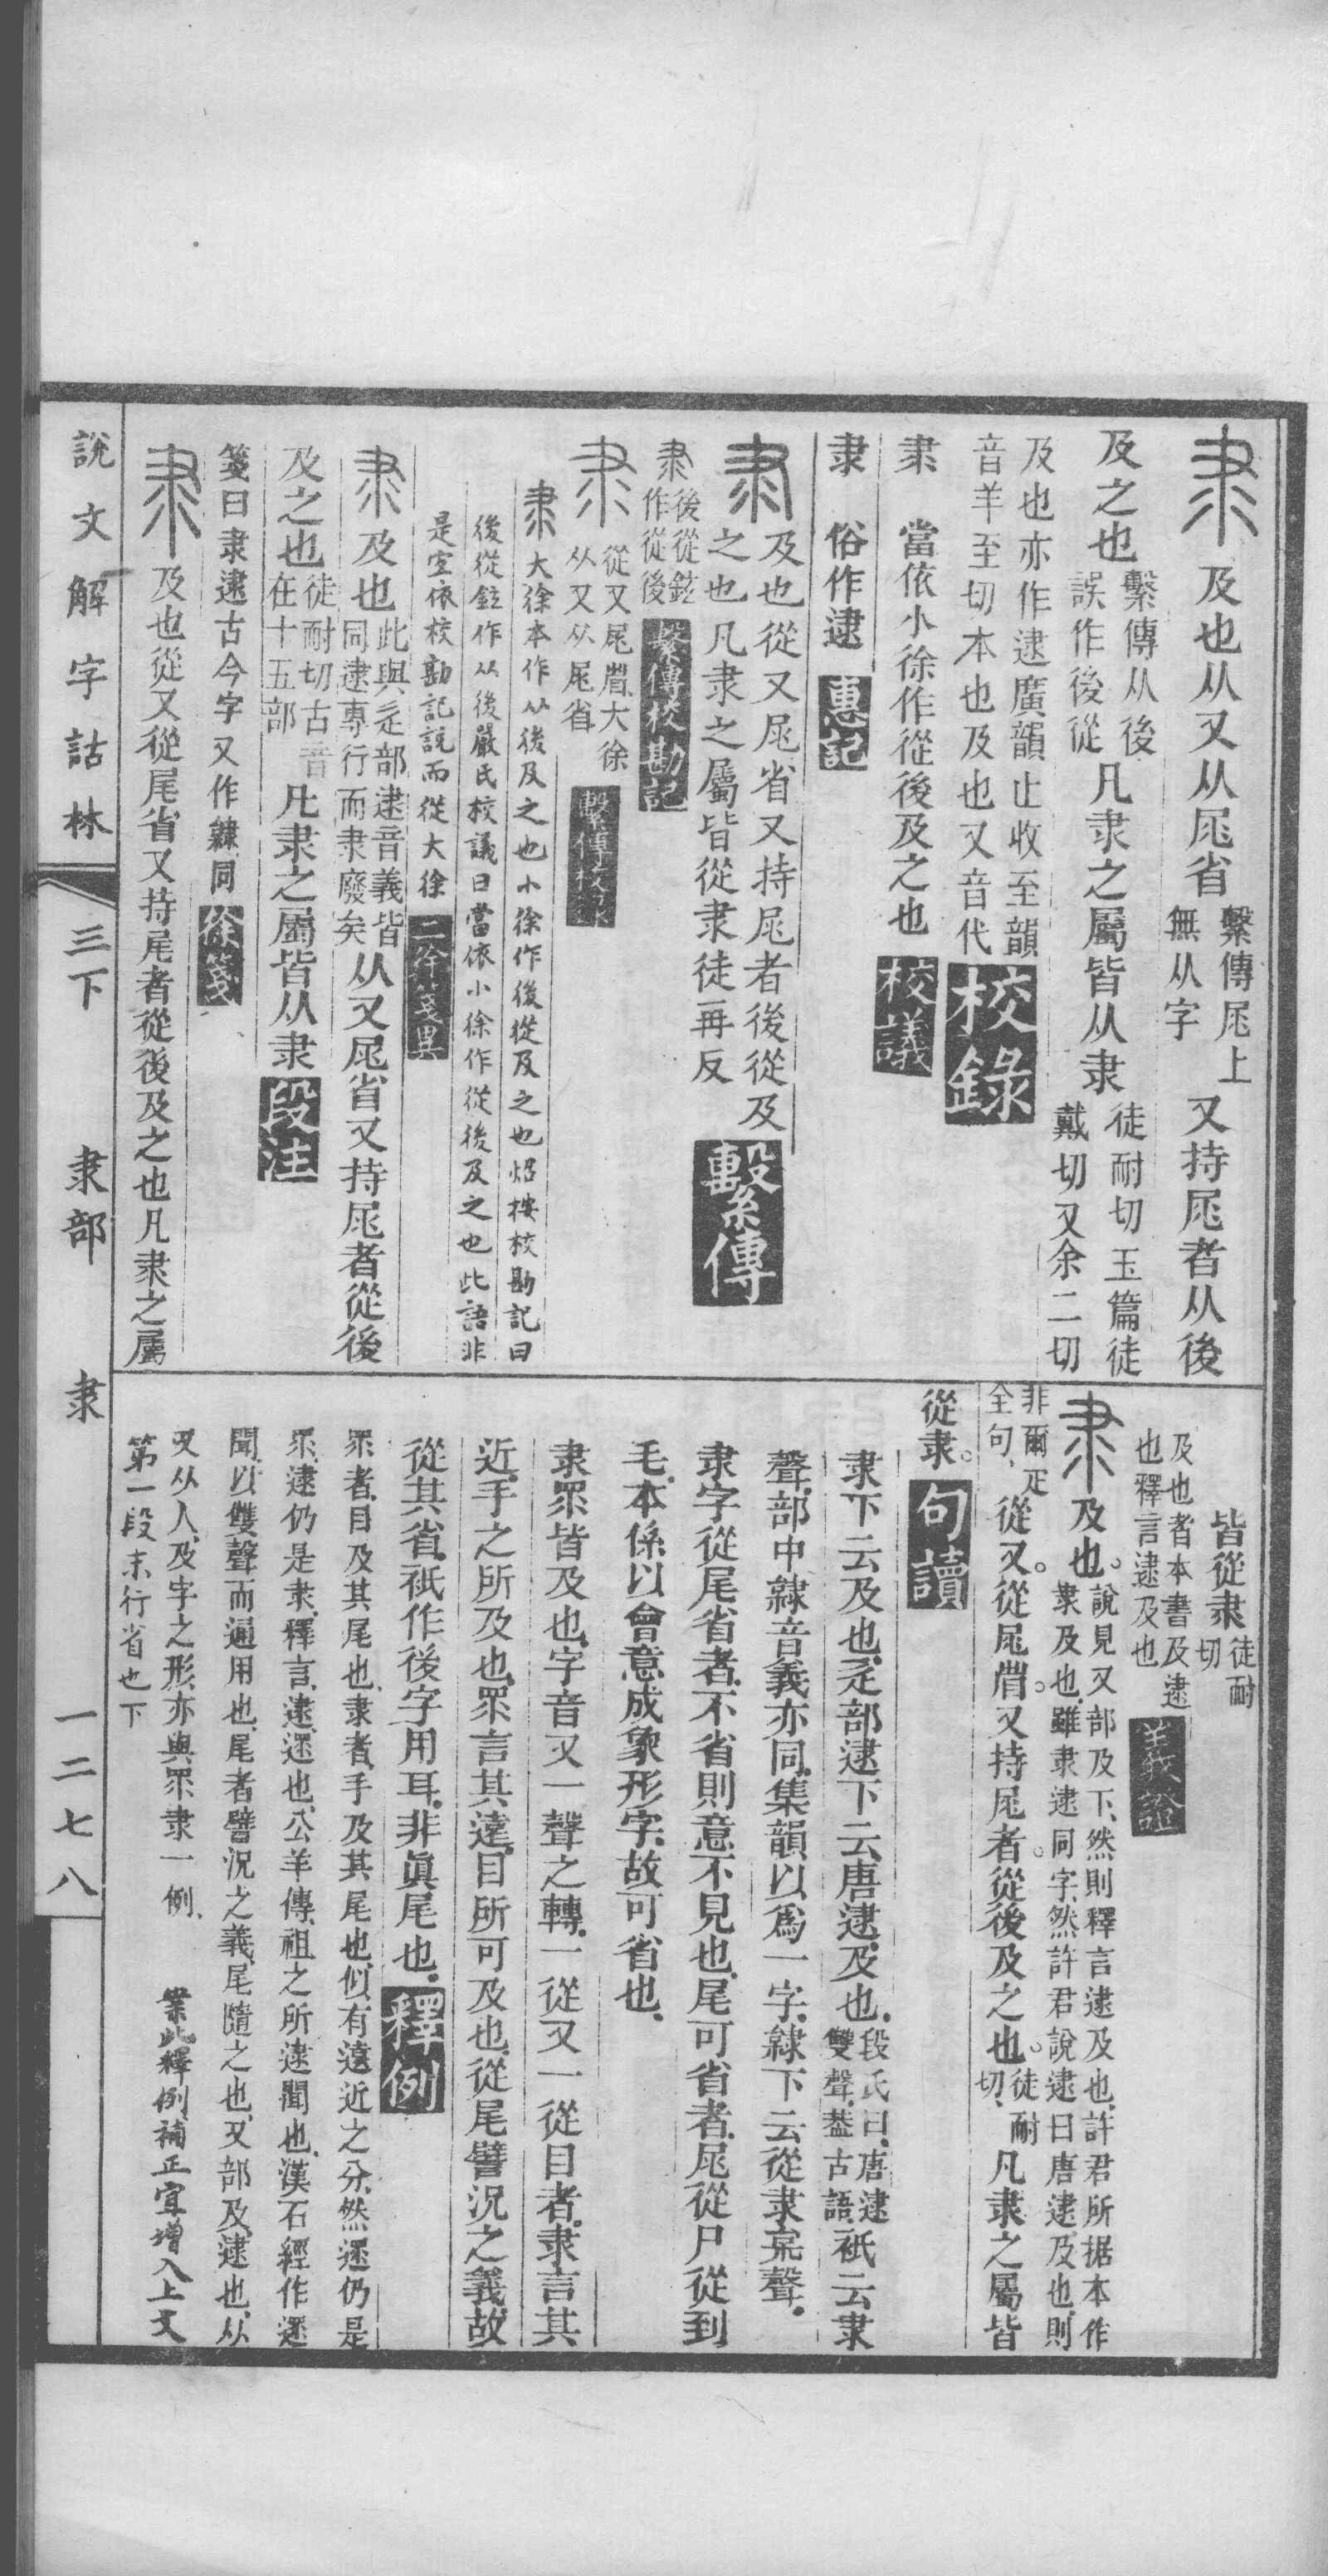 隶 及也从又从尾省繫傳尾上無从字又持尾者从後
及之也繫傳从後誤作後從凡隶之屬皆从隶徒耐切玉篇徒戴切又余二切
及也亦作逮廣韻止收至韻音羊至切本也及也又音代 校錄
隶 當依小徐作從後及之也 校議
隶 俗作逮 惠記
隶 及也從又尾省又持尾者後從及之也凡隶之屬皆從隶徒再反 繫傳
隶 後從鉉作從後 繫傳校勘記
隶 從又尾省大徐从又从尾省 繫傳校錄
隶 大徐本作从後及之也小徐作後從及之也炤按校勘記曰
後從鉉作从後嚴氏校議曰當依小徐作從後及之也此語非
是宜依校勘記說而從大徐 二徐箋異
隶 及也此與辵部逮音義皆同逮專行而隶廢矣从又尾省又持尾者從後
及之也徒耐切古音在十五部凡隶之屬皆从隶 段注
箋曰隶逮古今字又作隸同 徐箋
隶 及也從又從尾省又持尾者從後及之也凡隶之屬
皆從隶徒耐切
及也者本書及逮也釋言逮及也 義證
隶 及也。說見又部及下、然則釋言逮及也、許君所据本作隶及也、雖隶逮同字、然許君說逮曰唐逮及也、則
非爾疋全句、從又。從尾省。又持尾者。從後及之也。徒耐切、凡隶之屬皆
從隶。 句讀
隶下云及也、辵部逮下云唐逮、及也、段氏曰、唐逮雙聲、葢古語、祇云隶
聲、部中隸音義亦同、集韻以爲一字、隸下云從隶枲聲、
隶字從尾省者、不省則意不見也、尾可省者、尾從尸從到
毛、本係以會意成象形字、故可省也、
隶眔皆及也、字音又一聲之轉、一從又一從目者、隶言其
近、手之所及也、眔言其遠、目所可及也、從尾譬況之義、故
從其省、祇作後字用耳、非眞尾也、 釋例
眔者、目及其尾也、隶者、手及其尾也、似有遠近之分、然遝仍是
眔、逮仍是隶、釋言、逮、遝也、公羊傳、祖之所逮聞也、漢石經作遝
聞、以雙聲而通用也、尾者譬況之義、尾隨之也、又部及、逮也、从
又从人、及字之形、亦與眔隶一例、 業此釋例補正宜增入上文
第一段末行省也下
說文解字詁林 三下 隶部 隶 一二七八